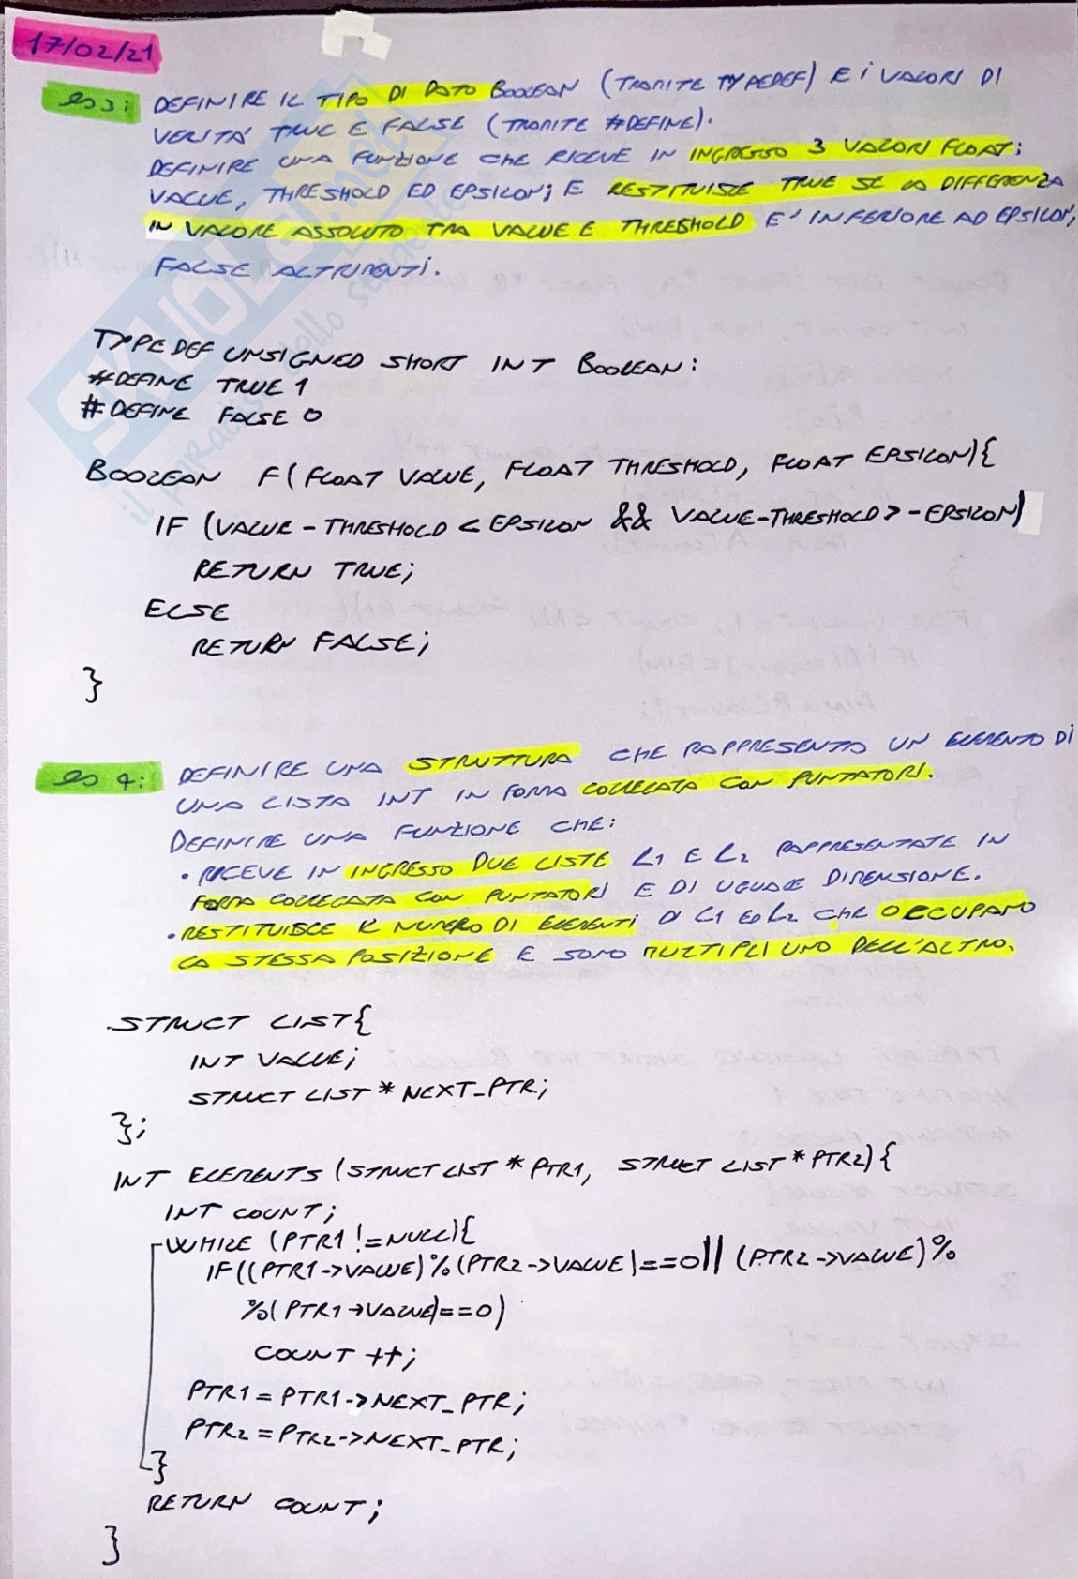 17/02/21
es 3: DEFINIRE IL TIPO DI DATO BOOLEAN (TRAMITE TYPEDEF) E I VALORI DI
VERITÀ TRUE E FALSE (TRAMITE #DEFINE).
DEFINIRE UNA FUNZIONE CHE RICEVE IN INGRESSO 3 VALORI FLOAT:
VALUE, THRESHOLD ED EPSILON; E RESTITUISCE TRUE SE LA DIFFERENZA
IN VALORE ASSOLUTO TRA VALUE E THRESHOLD E' INFERIORE AD EPSILON,
FALSE ALTRIMENTI.
TYPEDEF UNSIGNED SHORT INT BOOLEAN:
#DEFINE TRUE 1
#DEFINE FALSE 0
BOOLEAN F(FLOAT VALUE, FLOAT THRESHOLD, FLOAT EPSILON){
IF (VALUE-THRESHOLD < EPSILON && VALUE-THRESHOLD > -EPSILON)
RETURN TRUE;
ELSE
RETURN FALSE;
}
es 4: DEFINIRE UNA STRUTTURA CHE RAPPRESENTA UN ELEMENTO DI
UNA LISTA INT IN FORMA COLLEGATA CON PUNTATORI.
DEFINIRE UNA FUNZIONE CHE:
• RICEVE IN INGRESSO DUE LISTE L1 E L2 RAPPRESENTATE IN
FORMA COLLEGATA CON PUNTATORI E DI UGUALE DIMENSIONE.
• RESTITUISCE IL NUMERO DI ELEMENTI DI L1 ED L2 CHE OCCUPANO
LA STESSA POSIZIONE E SONO MULTIPLI UNO DELL'ALTRO.
STRUCT LIST{
INT VALUE;
STRUCT LIST * NEXT_PTR;
};
INT ELEMENTS (STRUCT LIST * PTR1, STRUCT LIST * PTR2){
INT COUNT;
WHILE (PTR1 != NULL){
IF((PTR1->VALUE)%(PTR2->VALUE)==0|| (PTR2->VALUE)%
%(PTR1->VALUE)==0)
COUNT ++;
PTR1 = PTR1->NEXT_PTR;
PTR2 = PTR2->NEXT_PTR;
}
RETURN COUNT;
}